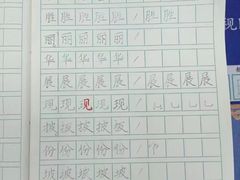 胜 胜 胜 胜 / 胜 胜
丽 丽 丽 丽 /
华 华 华 华 /
展 展 展 展 / 展 展 展 展
现 现 现 现 现 /
披 披 披 披 /
份 份 份 份 /
现